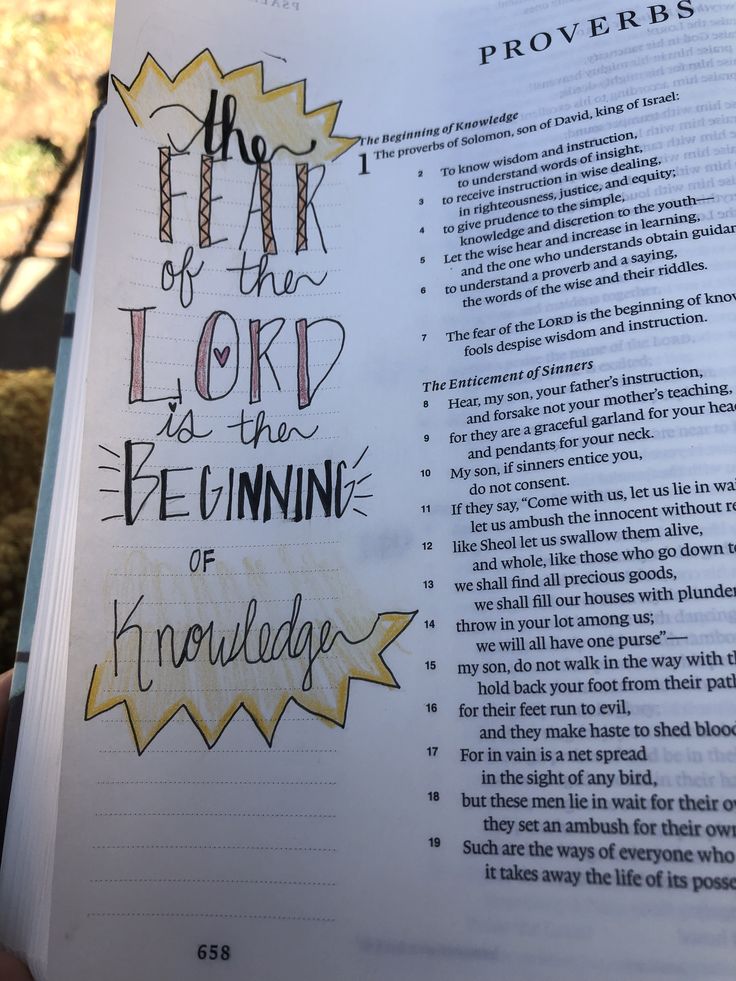 PROVERBS
the
FEAR
of the
LORD
is the
BEGINNING
OF
Knowledge
658
The Beginning of Knowledge
1 The proverbs of Solomon, son of David, king of Israel:
2 To know wisdom and instruction,
to understand words of insight,
3 to receive instruction in wise dealing,
in righteousness, justice, and equity;
4 to give prudence to the simple,
knowledge and discretion to the youth—
5 Let the wise hear and increase in learning,
and the one who understands obtain
6 to understand a proverb and a saying,
the words of the wise and their riddles.
7 The fear of the LORD is the beginning of
fools despise wisdom and instruction.
The Enticement of Sinners
8 Hear, my son, your father's instruction,
and forsake not your mother's teaching,
9 for they are a graceful garland for your
and pendants for your neck.
10 My son, if sinners entice you,
do not consent.
11 If they say, “Come with us, let us lie in
let us ambush the innocent without
12 like Sheol let us swallow them alive,
and whole, like those who go down
13 we shall find all precious goods,
we shall fill our houses with plunder
14 throw in your lot among us;
we will all have one purse”—
15 my son, do not walk in the way with
hold back your foot from their
16 for their feet run to evil,
and they make haste to shed blood
17 For in vain is a net spread
in the sight of any bird,
18 but these men lie in wait for their
they set an ambush for their own
19 Such are the ways of everyone who
it takes away the life of its